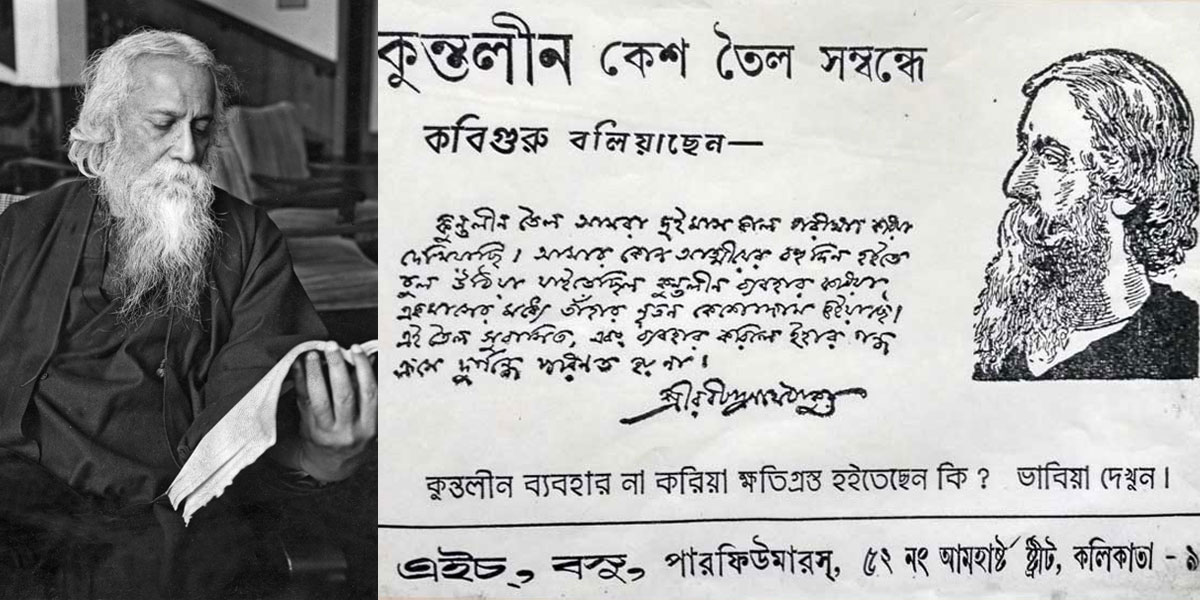 কুন্তলীন কেশ তৈল সম্বন্ধে
কবিগুরু বলিয়াছেন—
কুন্তলীন তৈল আমরা দুইমাস কাল পরীক্ষা করিয়া
দেখিয়াছি। আমার কোন আত্মীয়ের বহু দিন হইতে
চুল উঠিয়া যাইতেছিল কুন্তলীন ব্যবহার করিয়া
একমাসের মধ্যে তাঁহার নূতন কেশোদ্গম হইয়াছে।
এই তৈল সুবাসিত, এবং ব্যবহার করিলে ইহার গন্ধ
ক্রমে দুর্গন্ধে পরিণত হয় না।
শ্রীরবীন্দ্রনাথ ঠাকুর
কুন্তলীন ব্যবহার না করিয়া ক্ষতিগ্রস্ত হইতেছেন কি ? ভাবিয়া দেখুন।
এইচ্, বসু, পারফিউমারস্, ৫২ নং আমহার্ষ্ট ষ্ট্রীট, কলিকাতা - ৯